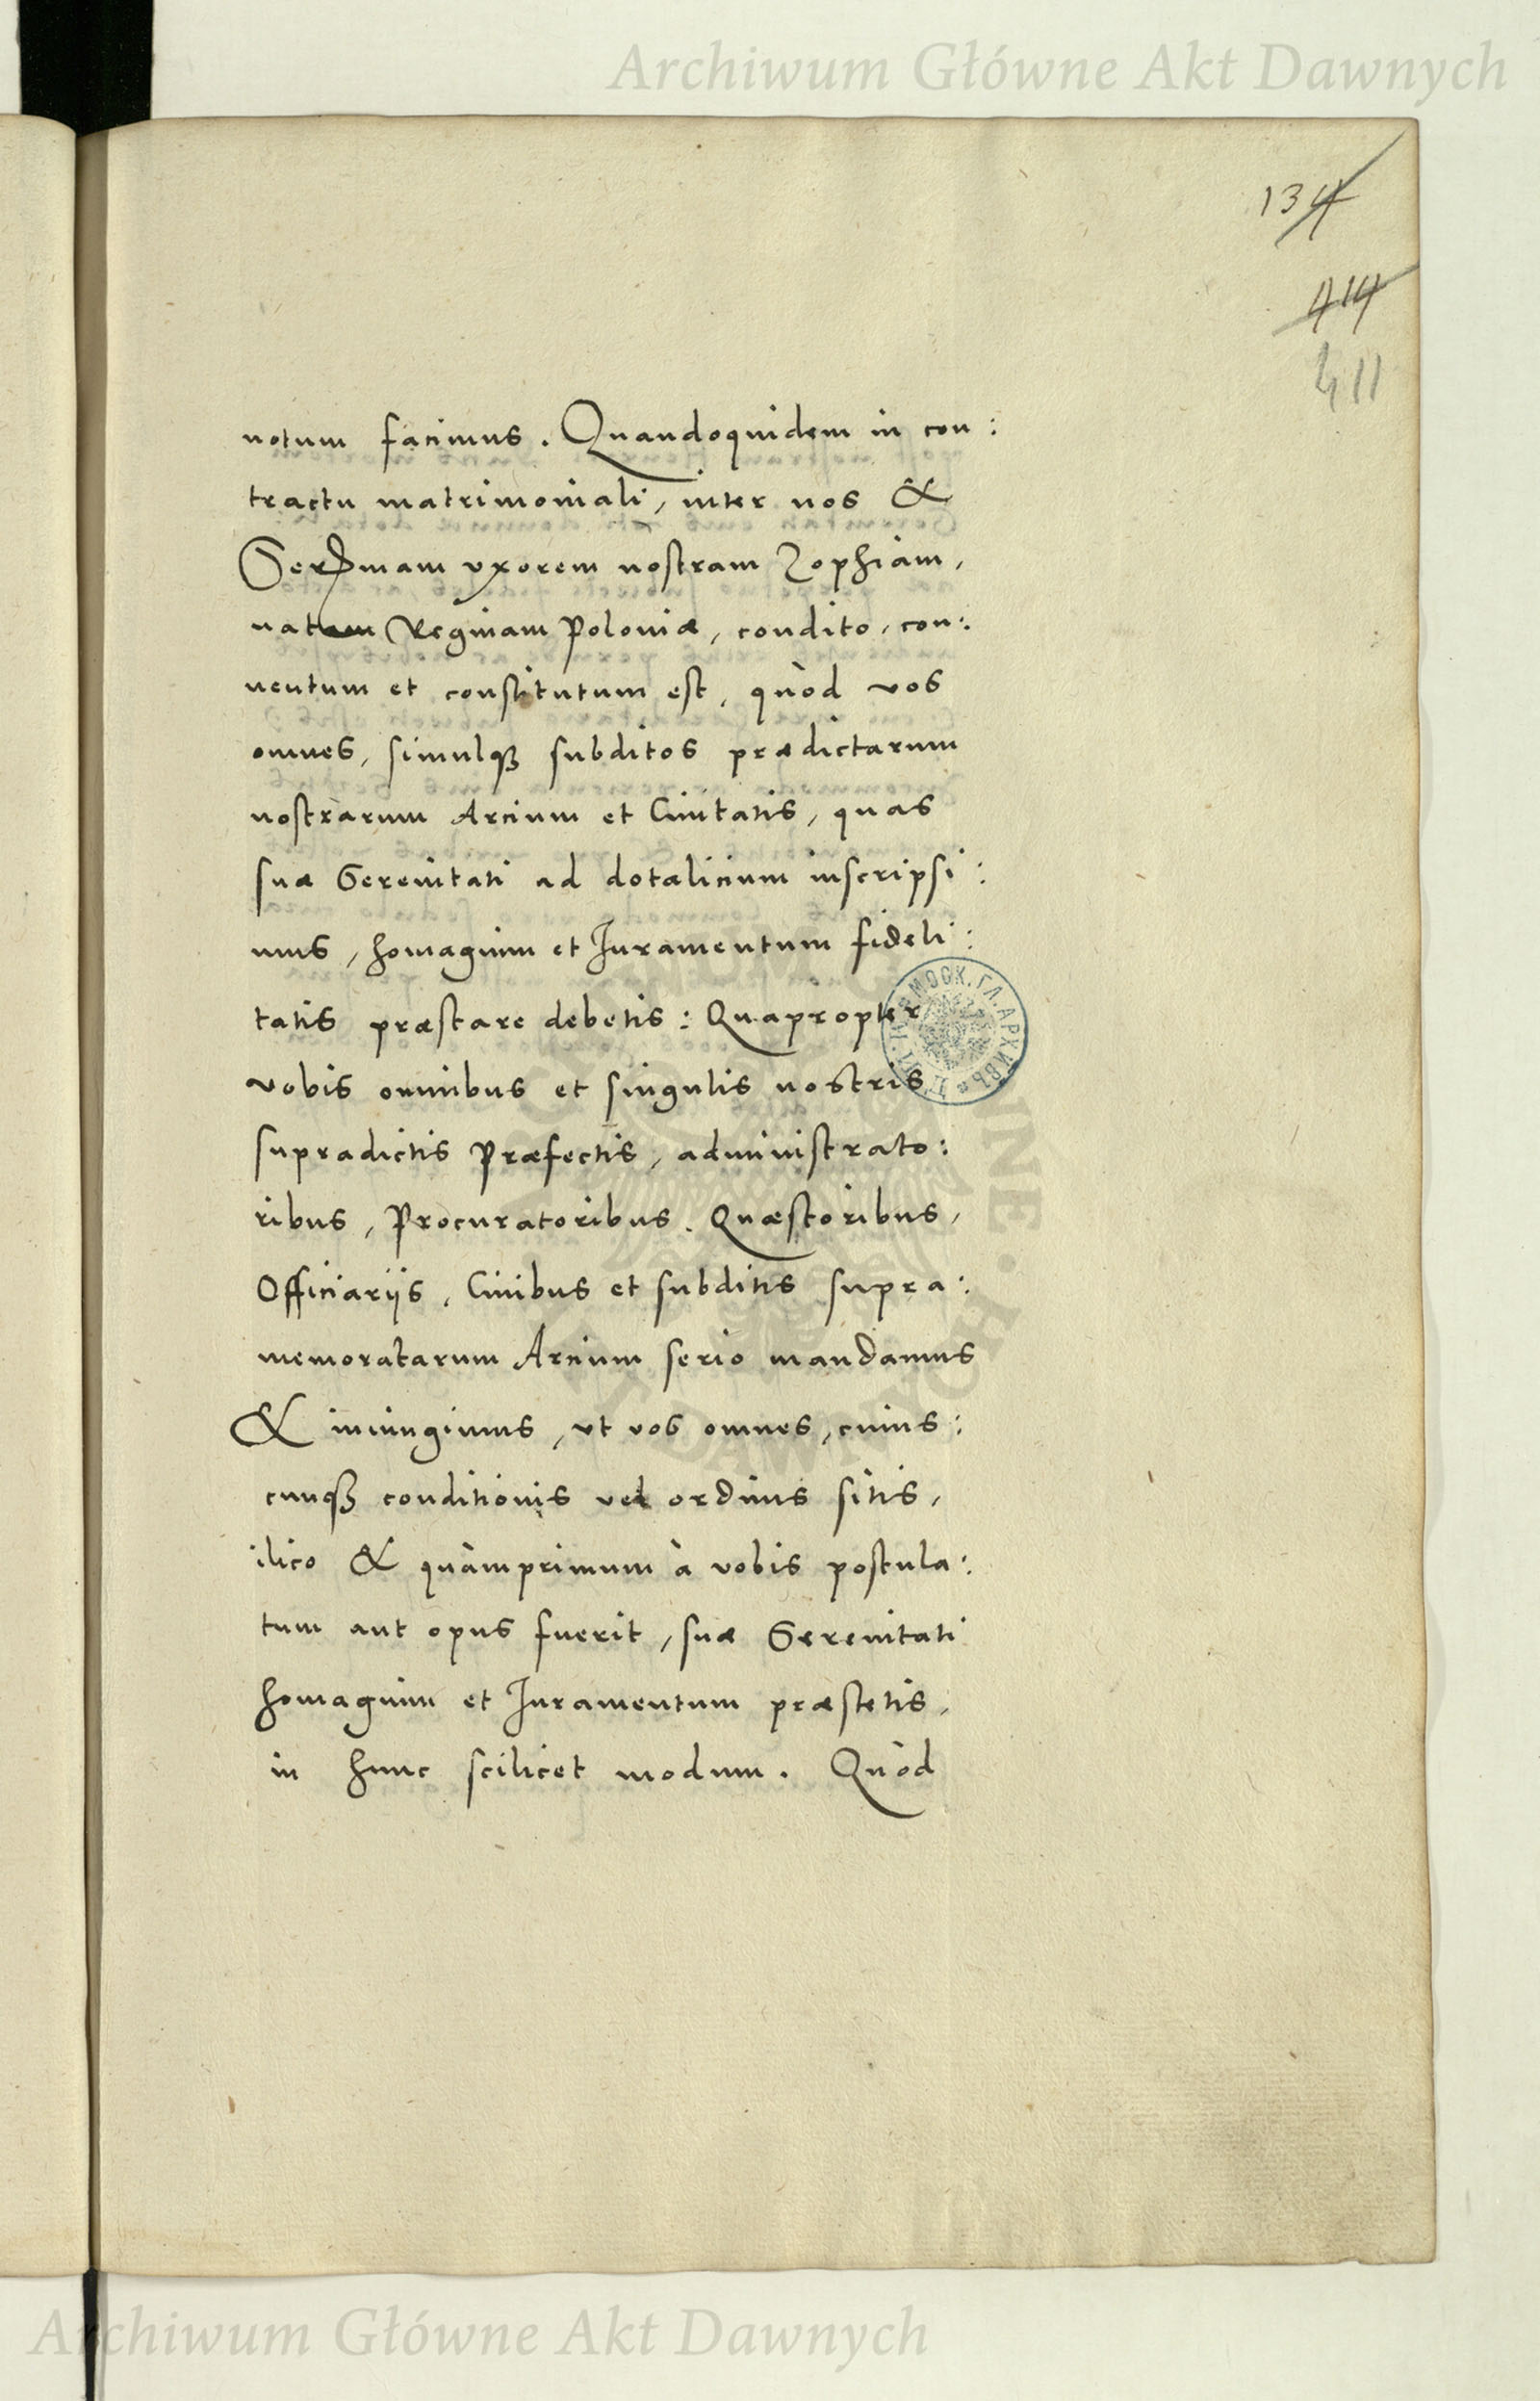 Archiwum Główne Akt Dawnych
134
414
411
notum facimus. Quandoquidem in con:
tractu matrimoniali, inter nos &
Serenissmam vxorem nostram Zophiam,
natam Reginam Poloniæ, condito, con:
uentum et constitutum est, quòd vos
omnes, simulqß subditos prædictarum
nostrarum Arcium et Ciuitatis, quas
suæ Serenitati ad dotalicium inscripsi:
mus, homagium et Iuramentum fideli:
tatis præstare debetis: Quapropter
vobis omnibus et singulis nostris
supradictis Præfectis, administrato:
ribus, Procuratoribus. Quæstoribus,
Officiarijs, Ciuibus et subditis supra:
memoratarum Arcium serio mandamus
& iniungimus, vt vos omnes, cuius:
cunqß conditionis vel ordinis sitis,
ilico & quàmprimum à vobis postula:
tum aut opus fuerit, suæ Serenitati
homagium et Iuramentum præstetis,
in hunc scilicet modum. Quòd
МОСК. ГЛ. АРХИВЪ
Archiwum Główne Akt Dawnych